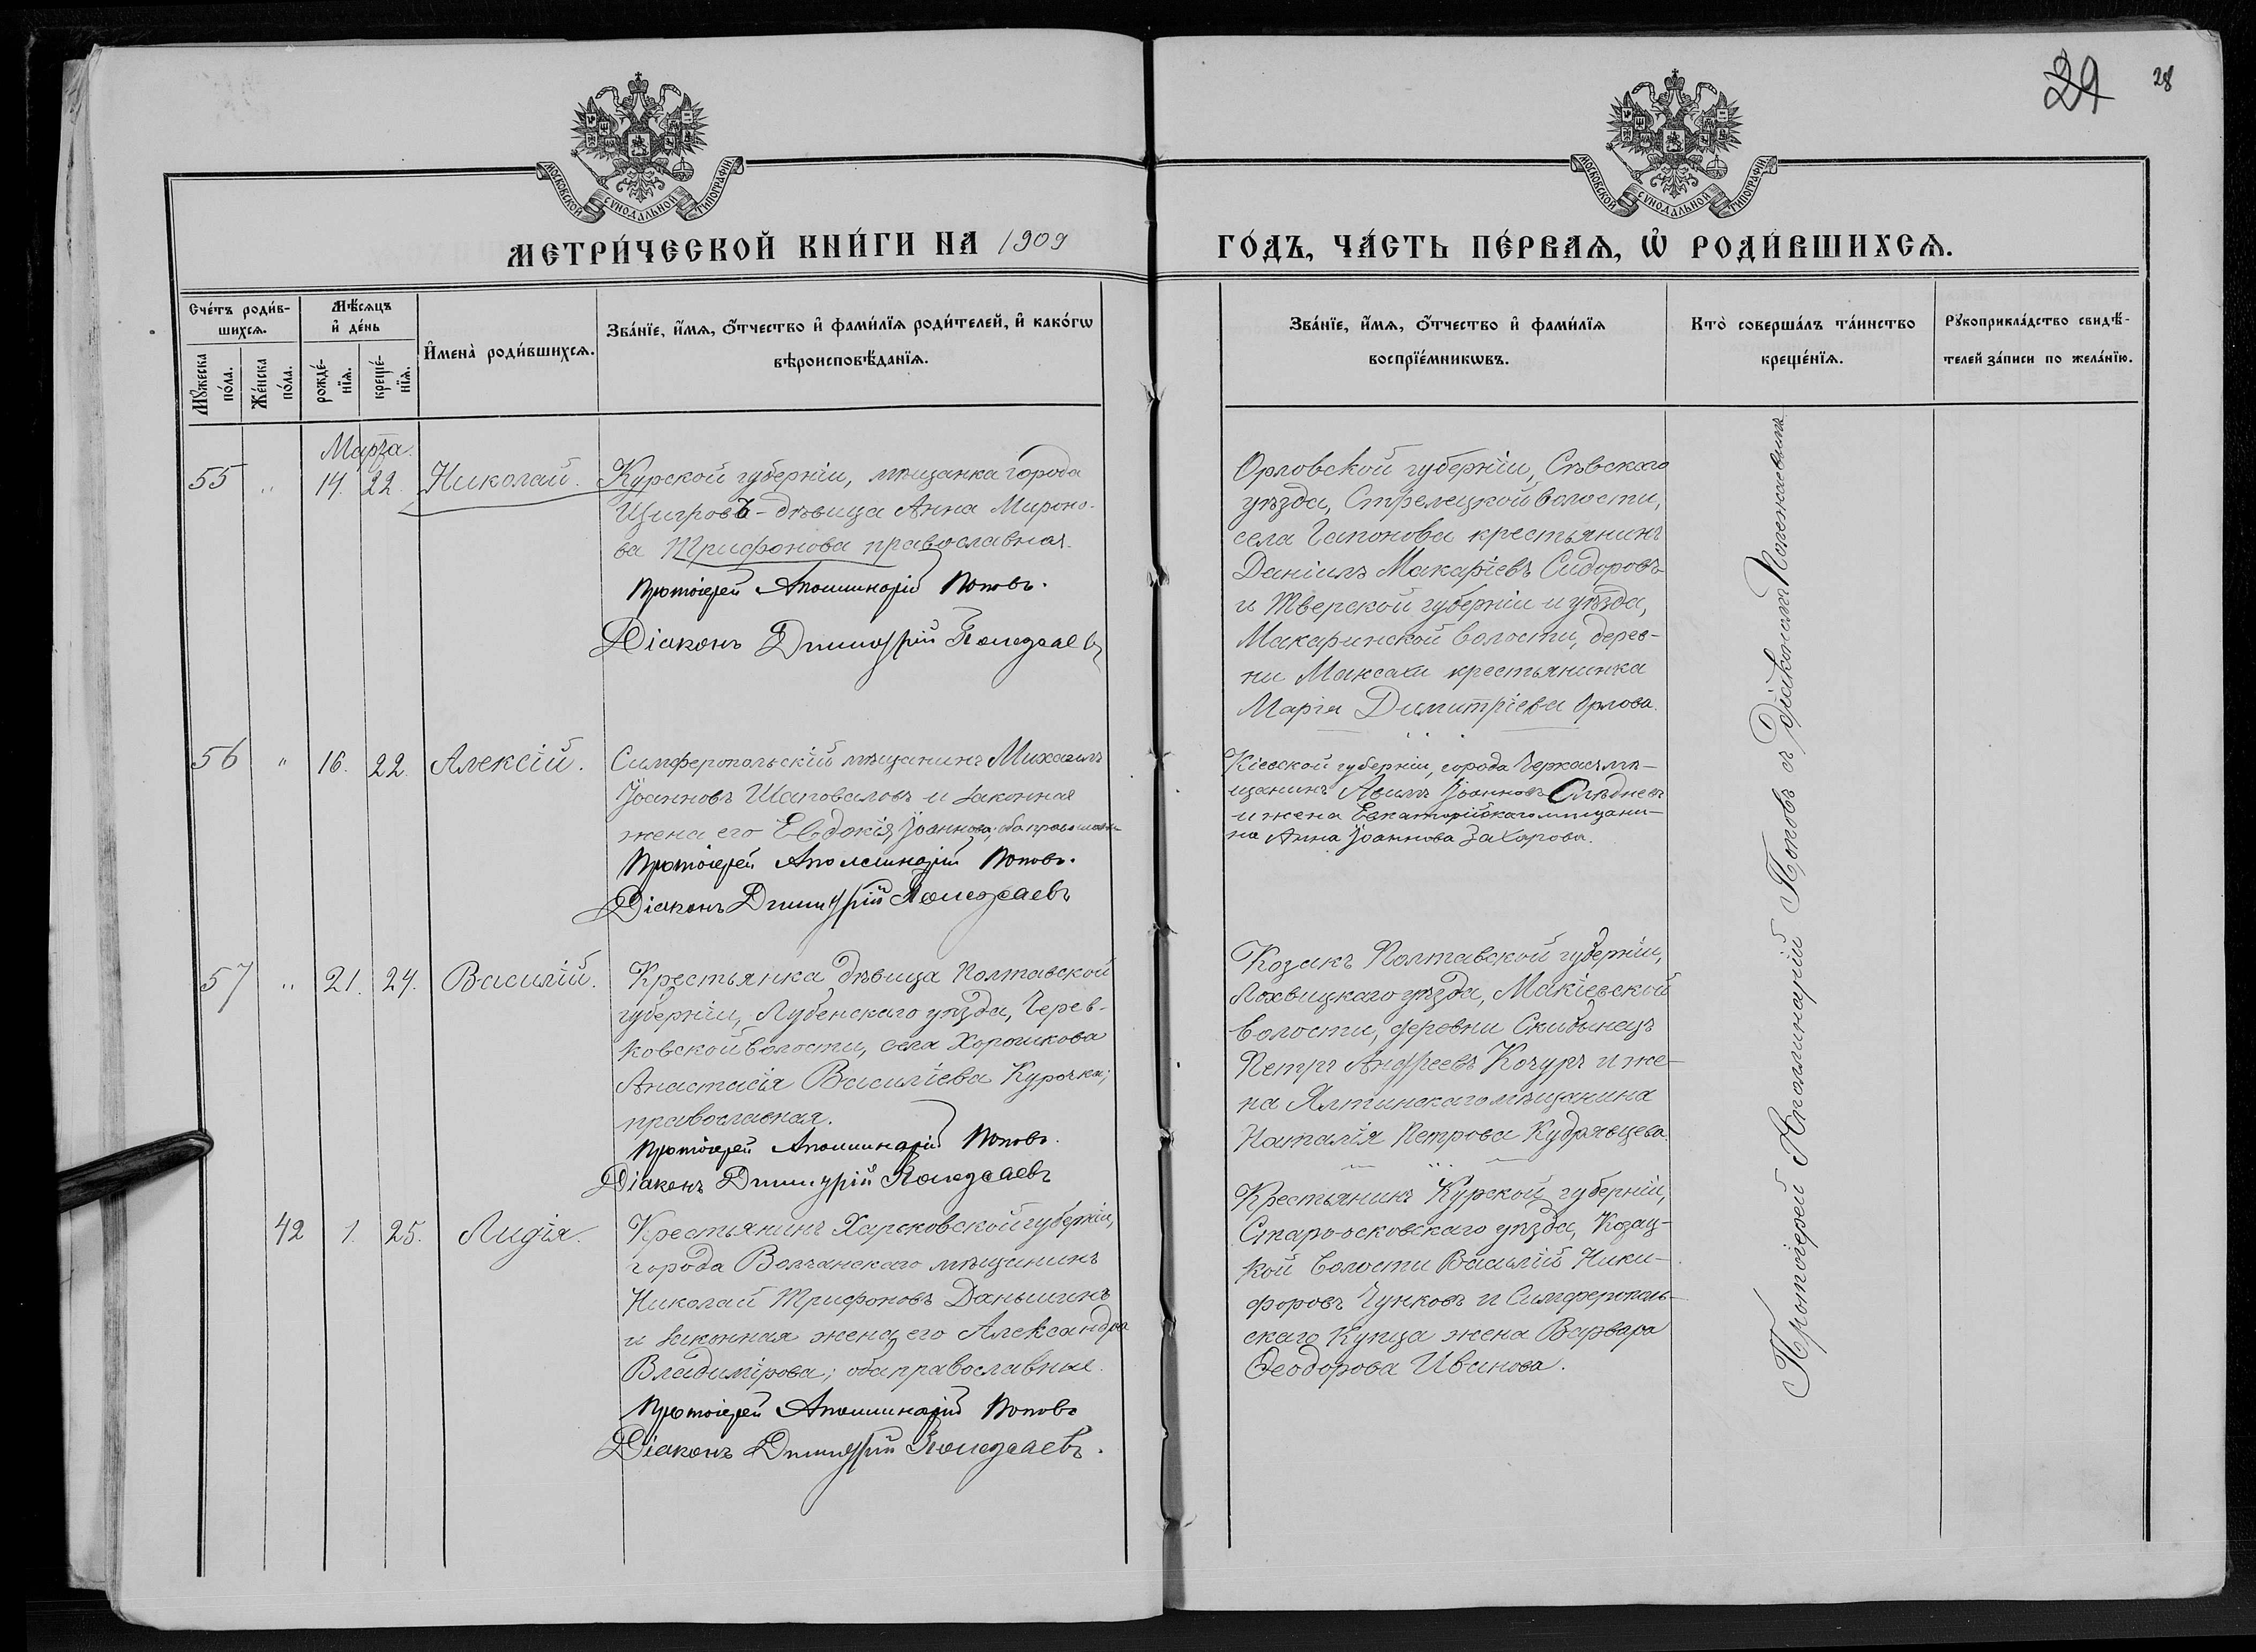 29 28
МОСКОВСКОЙ СѴНОДАЛЬНОЙ ТИПОГРАФІИ
МОСКОВСКОЙ СѴНОДАЛЬНОЙ ТИПОГРАФІИ
МЕТРИ́ЧЕСКОЙ КНИ́ГИ НА 1909
ГО́ДЪ, ЧА́СТЬ ПЕ́РВАѦ, Ѡ҆ РОДИ́ВШИХСѦ.
Сче́тъ роди́в-
шихсѧ.
Мꙋ́жеска по́ла.
Же́нска по́ла.
Мѣ́сѧцъ
и҆ де́нь
рожде́-
нїѧ.
креще́-
нїѧ.
И҆мена̀ роди́вшихсѧ.
Зва́нїе, и҆́мѧ, ѻ҆́тчество и҆ фами́лїѧ роди́телей, и҆ како́гѡ
вѣроисповѣ́данїѧ.
Зва́нїе, и҆́мѧ, ѻ҆́тчество и҆ фами́лїѧ
воспрїе́мникѡвъ.
Кто̀ соверша́лъ та́инство
креще́нїѧ.
Рꙋкоприкла́дство свидѣ́-
телей за́писи по жела́нїю.
Марта.
55 " 14. 22. Николай.
Курской губерніи, мѣщанка города
Щигровъ - дѣвица Анна Мироно-
ва Трифонова православная.
Протоіерей Аполлинарій Поповъ.
Діаконъ Димитрій Полежаевъ
Орловской губерніи, Сѣвскаго
уѣзда, Стрелецкой волости,
села Гапонова крестьянинъ
Даніилъ Макаріевъ Сидоровъ
и Тверской губерніи и уѣзда,
Макаринской волости, дерев-
ни Максаки крестьянинка
Марія Димитріева Орлова.
56 " 16. 22. Алексій.
Симферопольскій мѣщанинъ Михаилъ
Іоанновъ Шаповаловъ и законная
жена его Евдокія Іоаннова; оба православн-
Протоіерей Аполлинарій Поповъ.
Діаконъ Димитрій Полежаевъ
Кіевской губерніи, города Черкасъ мѣ-
щанинъ Іоанновъ Слѣдневъ
и жена Евпаторійскаго мѣщани-
на Анна Іоаннова Захарова.
57 " 21. 24. Василій.
Крестьянка дѣвица Полтавской
губерніи, Лубенскаго уѣзда, Черев-
ковской волости, села Хорошкова
Анастасія Василіева Курочка;
православная.
Протоіерей Аполлинарій Поповъ.
Діаконъ Димитрій Полежаевъ
Козакъ Полтавской губерніи,
Лохвицкаго уѣзда, Макіевской
волости, деревни Скибинецъ
Петръ Андреевъ Кочуръ и же-
на Ялтинскаго мѣщанина
Наталія Петрова Кудрявцева.
42 1. 25. Лидія.
Крестьянинъ Харьковской губерніи,
города Волчанскаго мѣщанинъ
Николай Трифоновъ Даньшинъ
и законная жена его Александра
Владимірова; оба православные.
Протоіерей Аполлинарій Поповъ
Діаконъ Димитрій Полежаевъ.
Крестьянинъ Курской губерніи,
Старо-оскoвскаго уѣзда, Козац-
кой волости Василій Ники-
форовъ Чунковъ и Симферополь-
скаго купца жена Варвара
Ѳеодорова Иванова.
Протоіерей Аполлинарій Поповъ съ Діакономъ Полежаевымъ